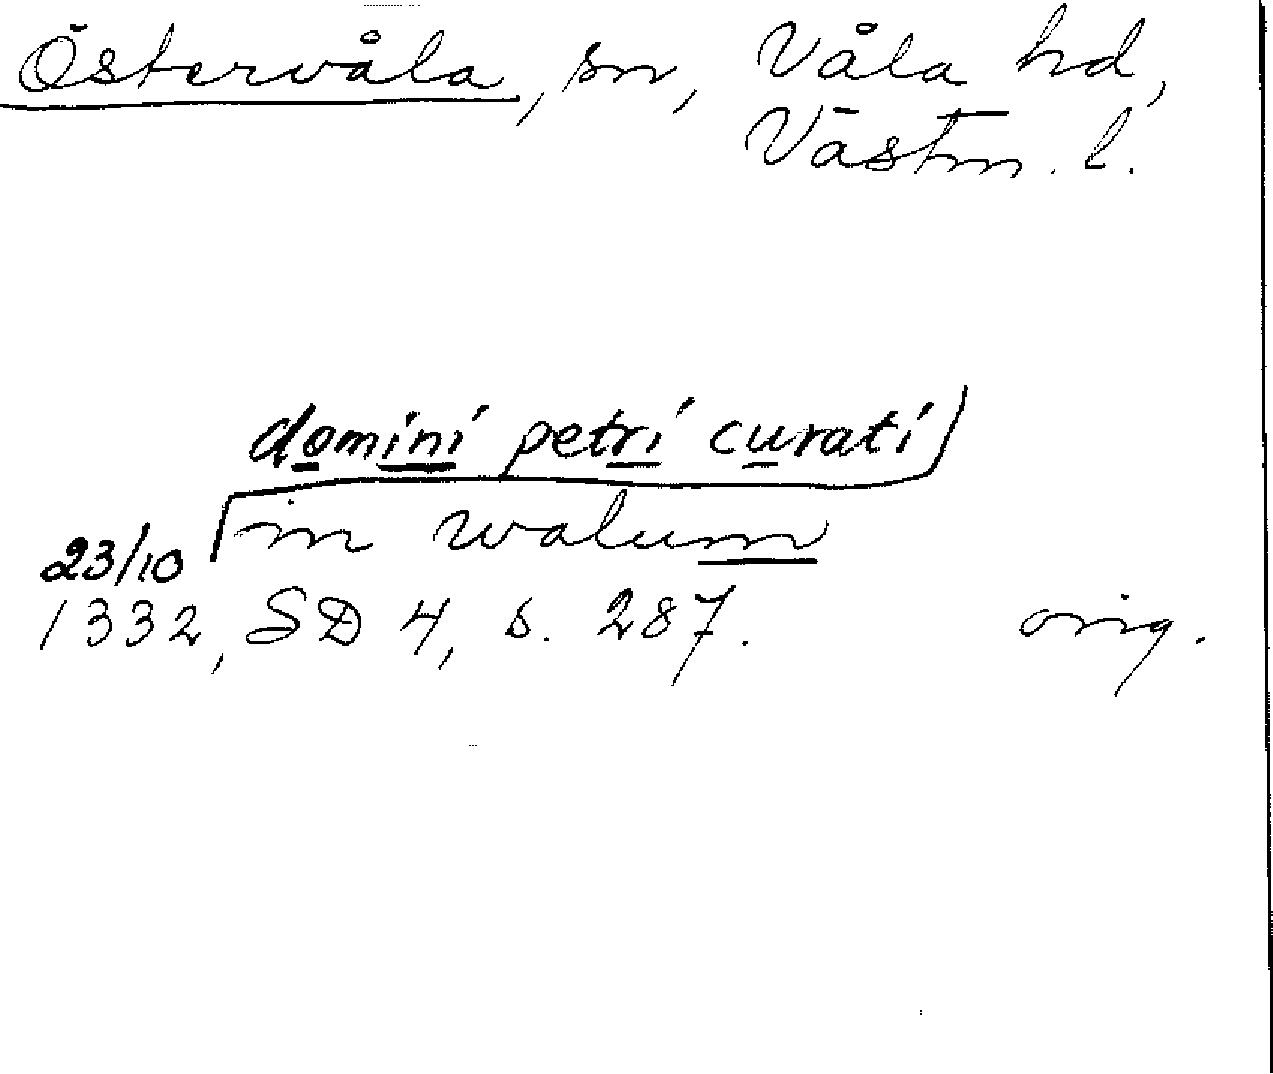 Östervåla, sn, Våla hd,
Västm. l.
domini petri curati
in walum
23/10
1332, SD 4, s. 287. orig.